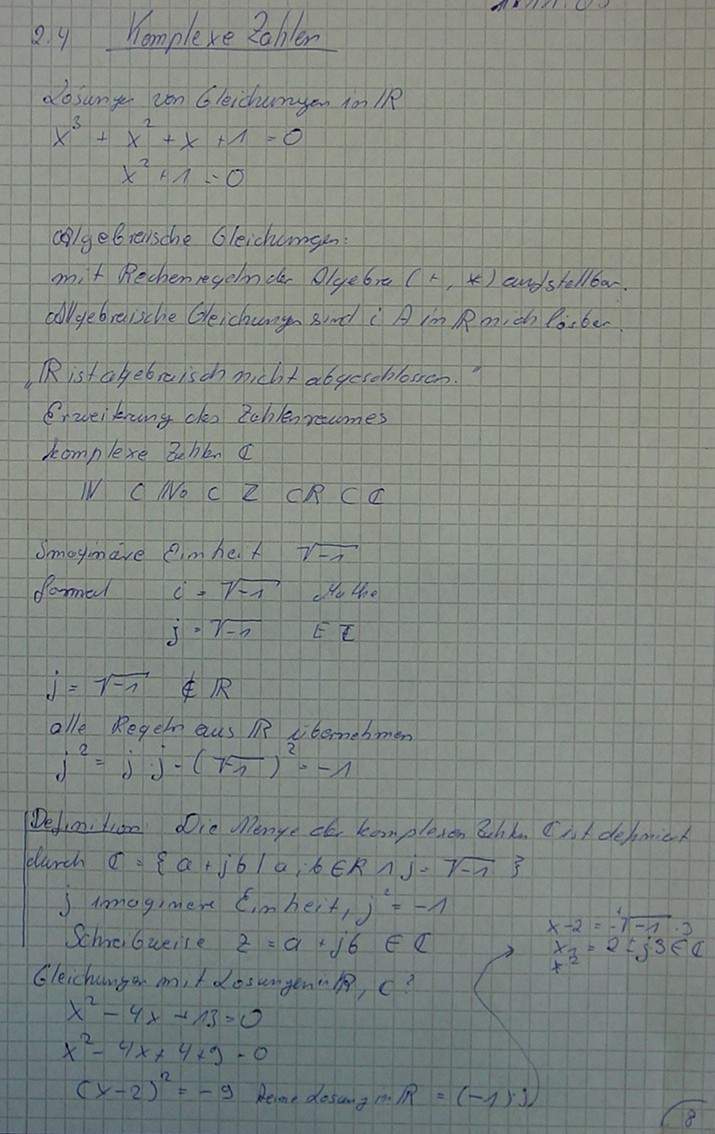 2.4 Komplexe Zahlen
Lösungen von Gleichungen in ℝ
x³ + x² + x + 1 = 0
x² + 1 = 0
Algebraische Gleichungen:
mit Rechenregeln der Algebra (+, *) aufstellbar.
Algebraische Gleichungen sind i A in ℝ nich lösbar.
„ℝ ist algebraisch nicht abgeschlossen."
Erweiterung des Zahlenraumes
komplexe Zahlen ℂ
ℕ ⊂ ℕ₀ ⊂ ℤ ⊂ ℝ ⊂ ℂ
Imaginäre Einheit √-1
formal i = √-1 Mathe
j = √-1 ET
j = √-1 ∉ ℝ
alle Regeln aus ℝ übernehmen
j² = j · j = (√-1)² = -1
Definition: Die Menge der komplexen Zahlen ℂ ist definiert
durch ℂ = { a + jb | a, b ∈ ℝ ∧ j = √-1 }
j imaginere Einheit, j² = -1
Schreibweise z = a + jb ∈ ℂ
x-2 = √-1 · 3
= 2 ± j3 ∈ ℂ
Gleichungen mit Lösungen in ℝ, ℂ?
x² - 4x + 13 = 0
x² - 4x + 4 + 9 = 0
(x-2)² = -9 keine Lösung in ℝ = (-1)
8